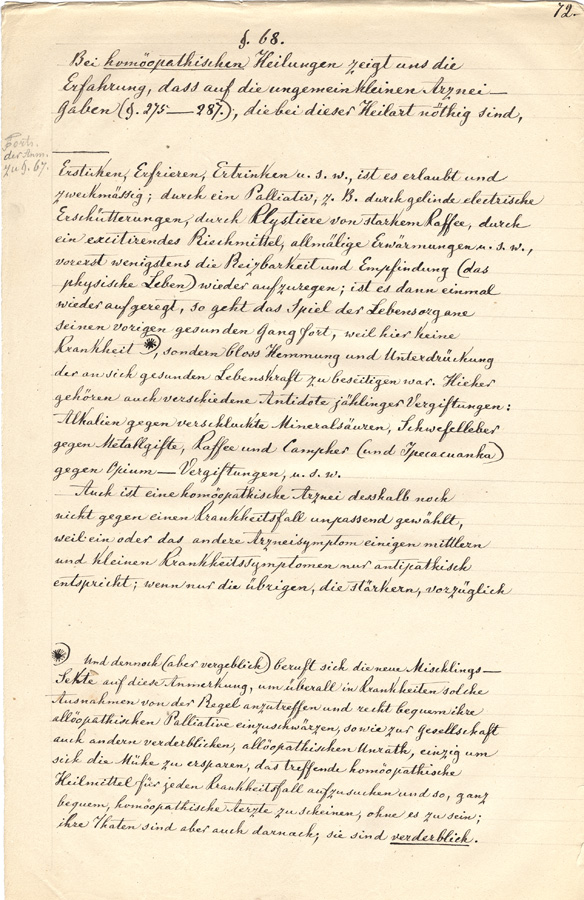 72.
§. 68.
Bei homöopathischen Heilungen zeigt uns die
Erfahrung, dass auf die ungemein kleinen Arznei—
Gaben (§. 275—287.), die bei dieser Heilart nöthig sind,
Forts.
der Anm.
zu §. 67.
Ersticken, Erfrieren, Ertrinken u. s. w., ist es erlaubt und
zweckmässig; durch ein Palliativ, z. B. durch gelinde electrische
Erschütterungen, durch Klystiere von starkem Kaffee, durch
ein excitirendes Riechmittel, allmälige Erwärmungen u. s. w.,
vorerst wenigstens die Reizbarkeit und Empfindung (das
physische Leben) wieder aufzuregen; ist es dann einmal
wieder aufgeregt, so geht das Spiel der Lebensorgane
seinen vorigen gesunden Gang fort, weil hier keine
Krankheit *), sondern bloss Hemmung und Unterdrückung
der an sich gesunden Lebenskraft zu beseitigen war. Hieher
gehören auch verschiedene Antidote jählinger Vergiftungen:
Alkalien gegen verschluckte Mineralsäuren, Schwefelleber
gegen Metallgifte, Kaffee und Campher (und Ipecacuanha)
gegen Opium—Vergiftungen, u. s. w.
Auch ist eine homöopathische Arznei desshalb noch
nicht gegen einen Krankheitsfall unpassend gewählt,
weil ein oder das andere Arzneisymptom einigen mittlern
und kleinen Krankheitssymptomen nur antipathisch
entspricht; wenn nur die übrigen, die stärkern, vorzüglich
*) Und dennoch (aber vergeblich) beruft sich die neue Mischlings—
Sekte auf diese Anmerkung, um überall in Krankheiten solche
Ausnahmen von der Regel anzutreffen und recht bequem ihre
allöopathischen Palliative einzuschwärzen, sowie zur Gesellschaft
auch andern verderblichen, allöopathischen Unrath, einzig um
sich die Mühe zu ersparen, das treffende homöopathische
Heilmittel für jeden Krankheitsfall aufzusuchen und so, ganz
bequem, homöopathische Aerzte zu scheinen, ohne es zu sein;
ihre Thaten sind aber auch darnach; sie sind verderblich.